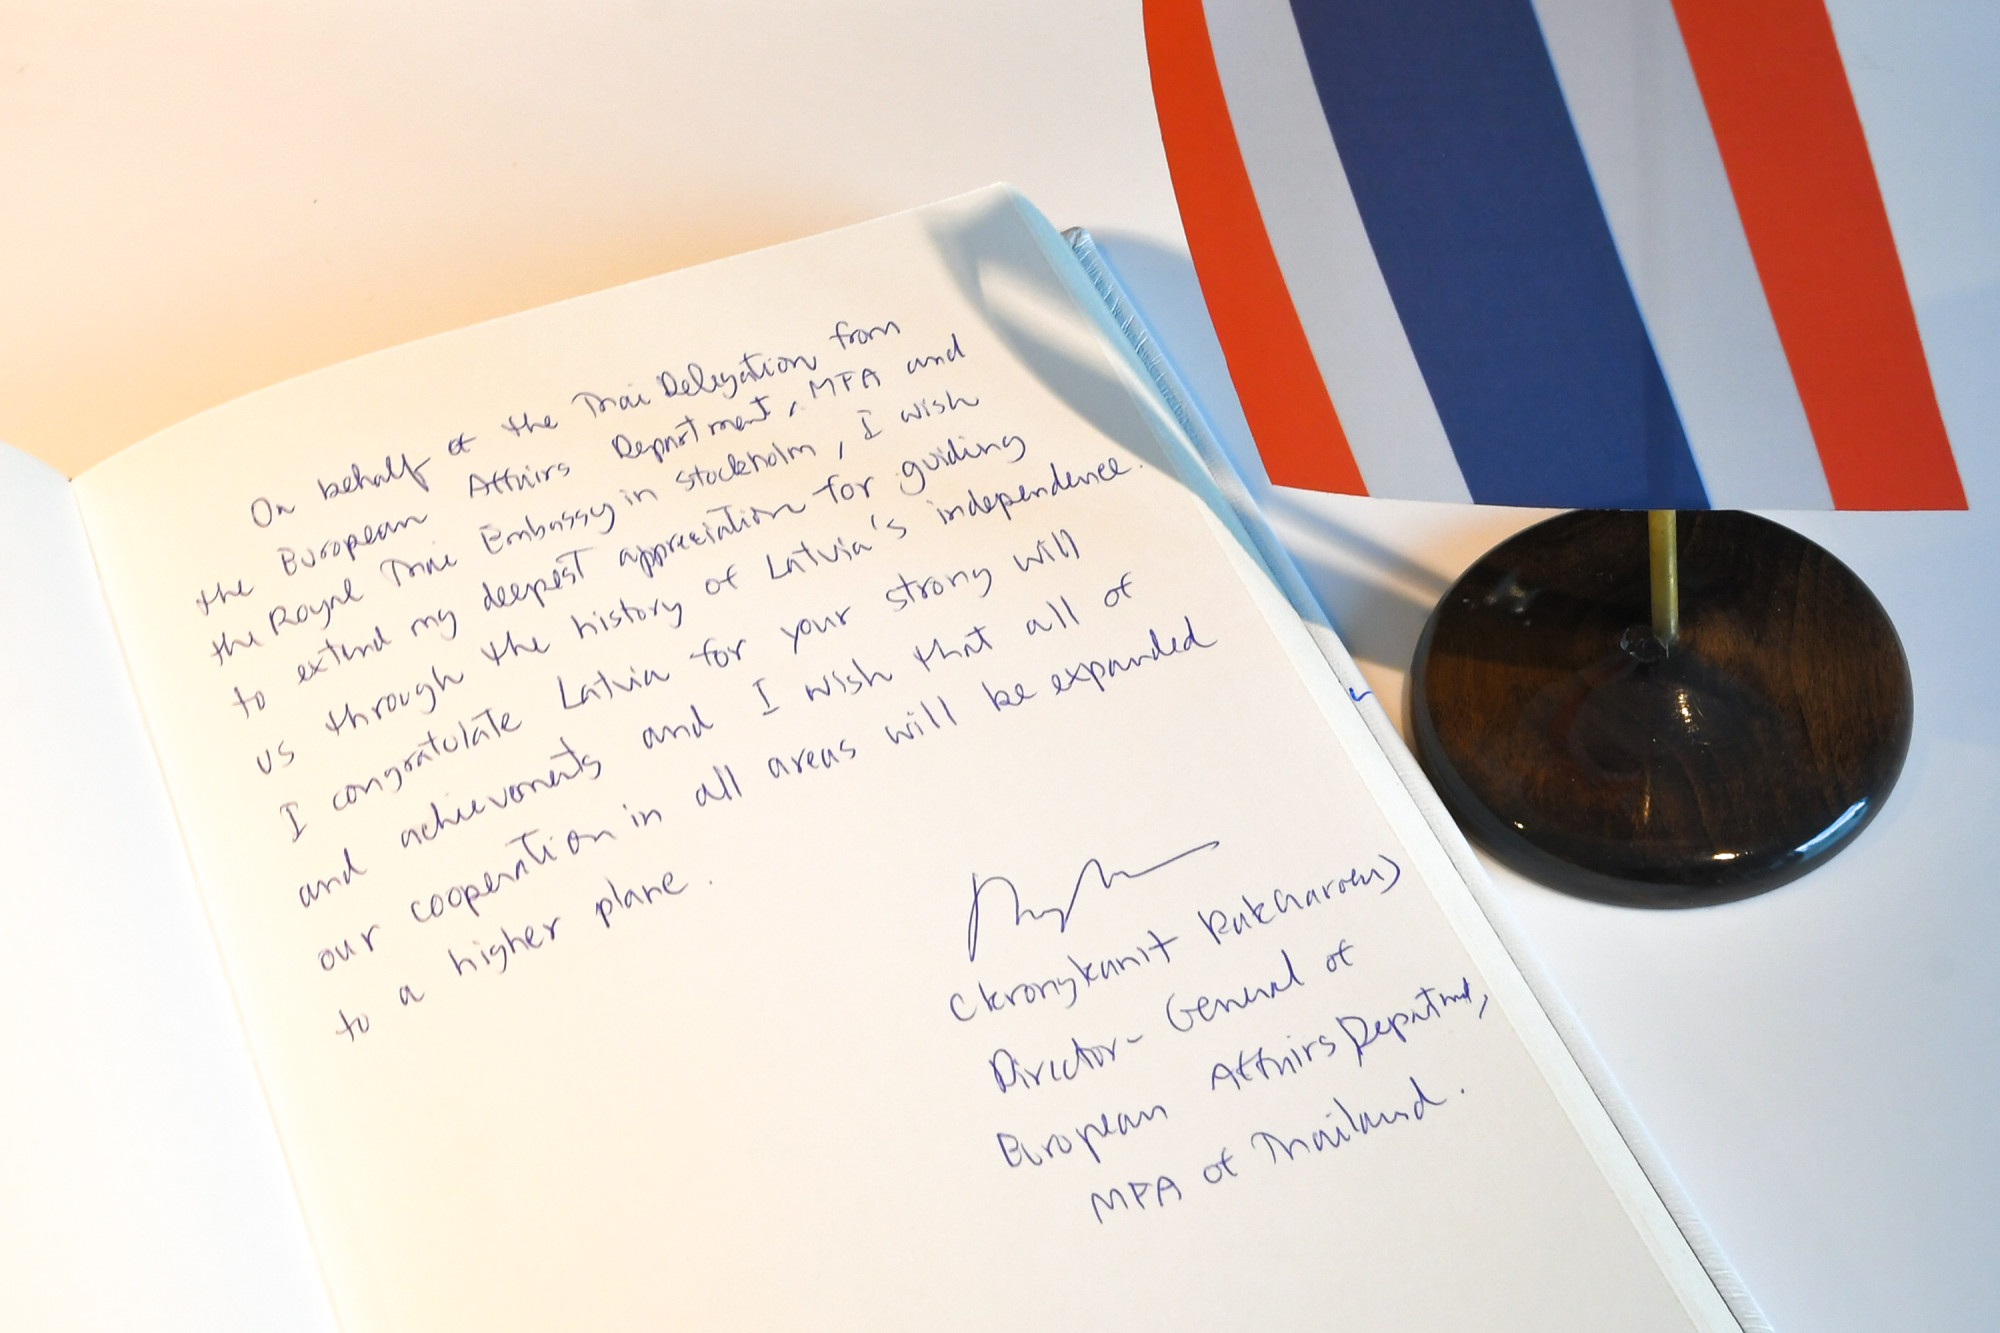 On behalf of the Thai Delegation from
the European Affairs Department, MFA and
the Royal Thai Embassy in Stockholm, I wish
to extend my deepest appreciation for guiding
us through the history of Latvia's independence.
I congratulate Latvia for your strong will
and achievements and I wish that all of
our cooperation in all areas will be expanded
to a higher plane.
(Krongkanit Rakcharoen)
Director-General of
European Affairs Department,
MFA of Thailand.